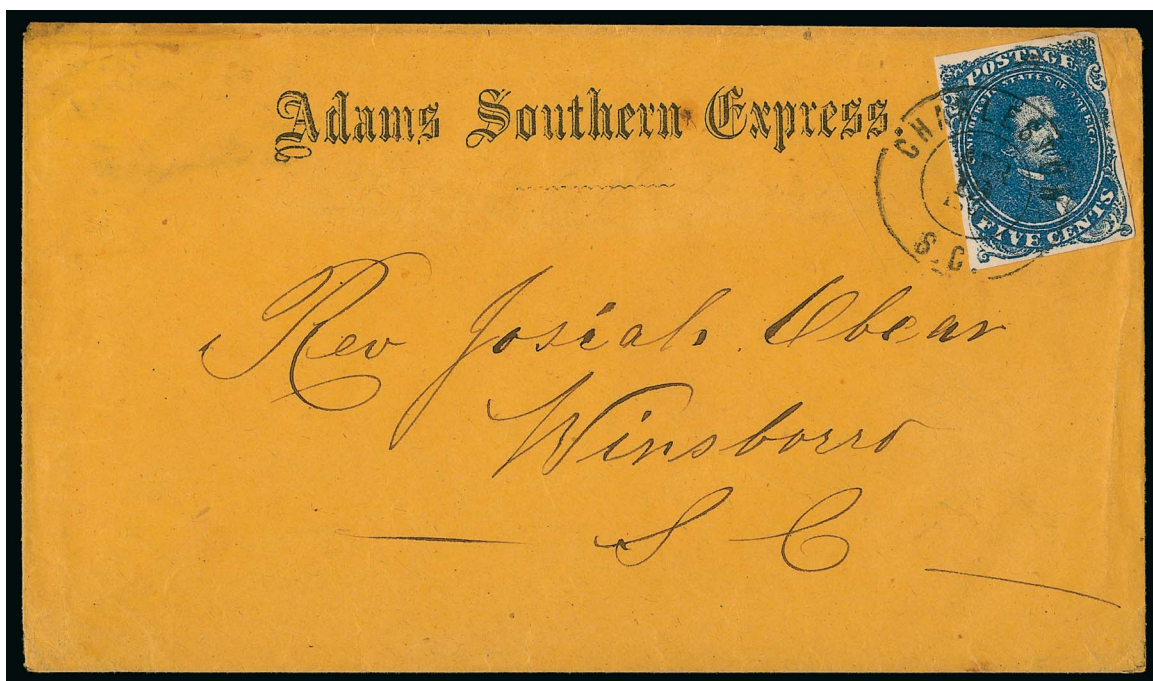 Adams Southern Express.
POSTAGE
CONFEDERATE STATES OF AMERICA
FIVE CENTS
CHARLESTON
S.C.
Rev Josiah Obear
Winsborro
S C